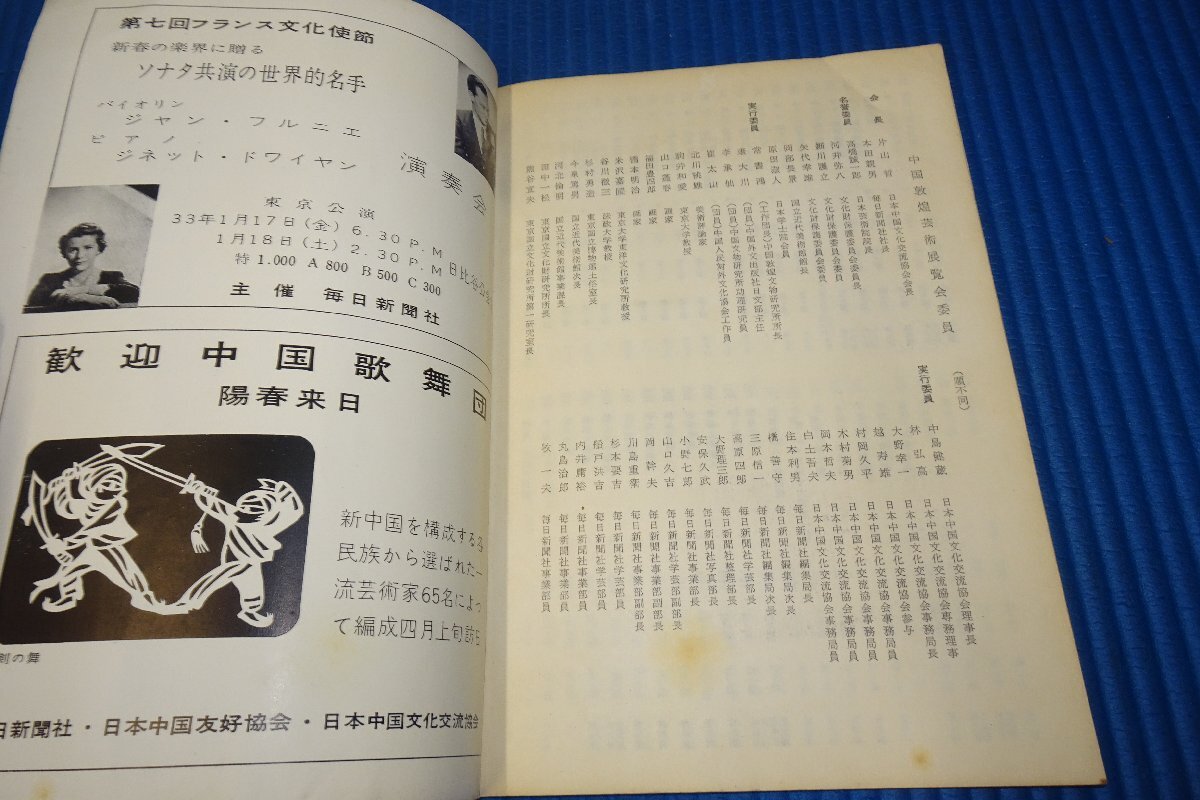 第七回フランス文化使節
新春の楽界に贈る
ソナタ共演の世界的名手
バイオリン
ジャン・フルニエ
ピアノ
ジネット・ドワイヤン
演奏会
東京公演
33年1月17日(金) 6.30 P.M
1月18日(土) 2.30 P.M
日比谷公
特1.000 A 800 B 500 C 300
主催 毎日新聞社
歓迎中国歌舞団
陽春来日
新中国を構成する各
民族から選ばれた一
流芸術家65名によっ
て編成四月上旬訪日
剣の舞
日新聞社・日本中国友好協会・日本中国文化交流協会
中国敦煌芸術展覧会委員
会長 片山哲 日本中国文化交流協会会長
本田親男 毎日新聞社社長
名誉委員 高橋誠一郎 日本芸術院院長
河井弥八 文化財保護委員会委員長
細川護立 文化財保護委員会委員
矢代幸雄 文化財保護委員会委員
岡部長景 国立近代美術館長
原田淑人 日本学士院会員
実行委員 常書鴻 (工作団長)中国敦煌文物研究所所長
(団員)中国外文出版社日文部主任
李承仙 (団員)中国敦煌文物研究所助理研究員
崔太山 (団員)中国人民対外文化協会工作員
北川桃雄 美術評論家
駒井和愛 東京大学教授
山口蓬春 画家
福田豊四郎 画家
橋本明治 画家
米沢嘉圃 東京大学東洋文化研究所教授
谷川徹三 法政大学教授
杉村勇造 東京国立博物館
今泉篤男 国立近代美術館次長
河北倫明 国立近代美術館事業課長
田中一松 東京国立文化財研究所所長
熊谷宣夫 東京国立文化財研究所第二研究室長
(順不同)
実行委員 中島健蔵 日本中国文化交流協会理事長
林弘高 日本中国文化交流協会専務理事
大野幸一 日本中国文化交流協会事務局長
越寿雄 日本中国文化交流協会参与
村岡久平 日本中国文化交流協会事務局員
木村菊男 日本中国文化交流協会事務局員
岡本哲夫 日本中国文化交流協会事務局員
白土吾夫 日本中国文化交流協会事務局員
住本利男 毎日新聞社編集局長
橘善守 毎日新聞社編集局次長
三原信一 毎日新聞社編集局次長
高原四郎 毎日新聞社学芸部長
大野理三郎 毎日新聞社整理部長
安保久武 毎日新聞社写真部長
小野七郎 毎日新聞社事業部長
山口久吉 毎日新聞社学芸部副部長
岡幹夫 毎日新聞社事業部副部長
川島重蔵 毎日新聞社事業部副部長
杉本要吉 毎日新聞社学芸部員
稲戸洪吉 毎日新聞社学芸部員
内井庸裕 毎日新聞社事業部員
丸島治郎 毎日新聞社事業部員
牧一夫 毎日新聞社事業部員